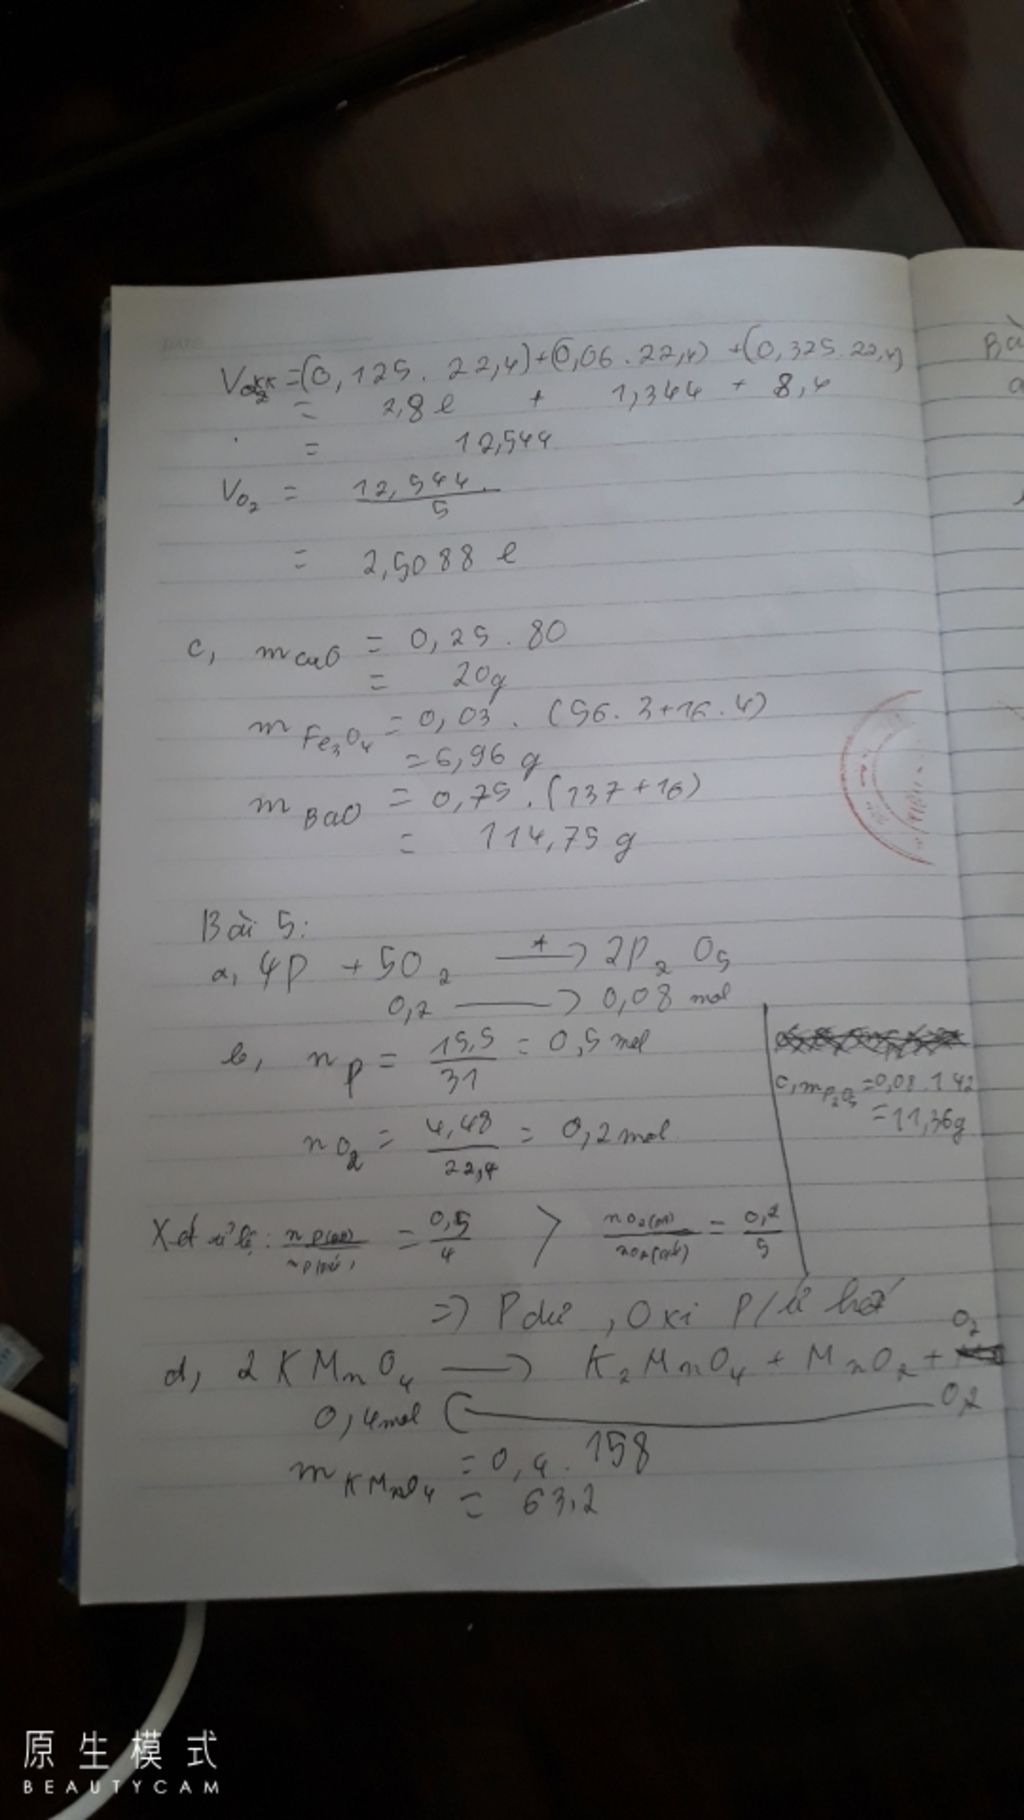 V O2 KK = (0,125 . 22,4) + (0,06 . 22,4) + (0,325 . 22,4)
= 2,8 l + 1,344 + 8,4
= 12,544
V O2 = 12,544 / 5
= 2,5088 l
c, m CuO = 0,25 . 80
= 20g
m Fe3O4 = 0,03 . (56 . 3 + 16 . 4)
= 6,96 g
m BaO = 0,75 . (137 + 16)
= 114,75 g
Bài 5:
a, 4P + 5O2 → 2P2O5
0,2 → 0,08 mol
b, n P = 15,5 / 31 = 0,5 mol
c, m P2O5 = 0,08 . 142
= 11,36g
n O2 = 4,48 / 22,4 = 0,2 mol
Xét tỉ lệ: n P / n P = 0,5 / 4 > n O2 / n O2 = 0,2 / 5
=> P dư, Oxi p/ứ hết
d, 2KMnO4 → K2MnO4 + MnO2 + O2
0,4 mol ← 0,2
m KMnO4 = 0,4 . 158
= 63,2
Bà
a
原生模式
BEAUTYCAM